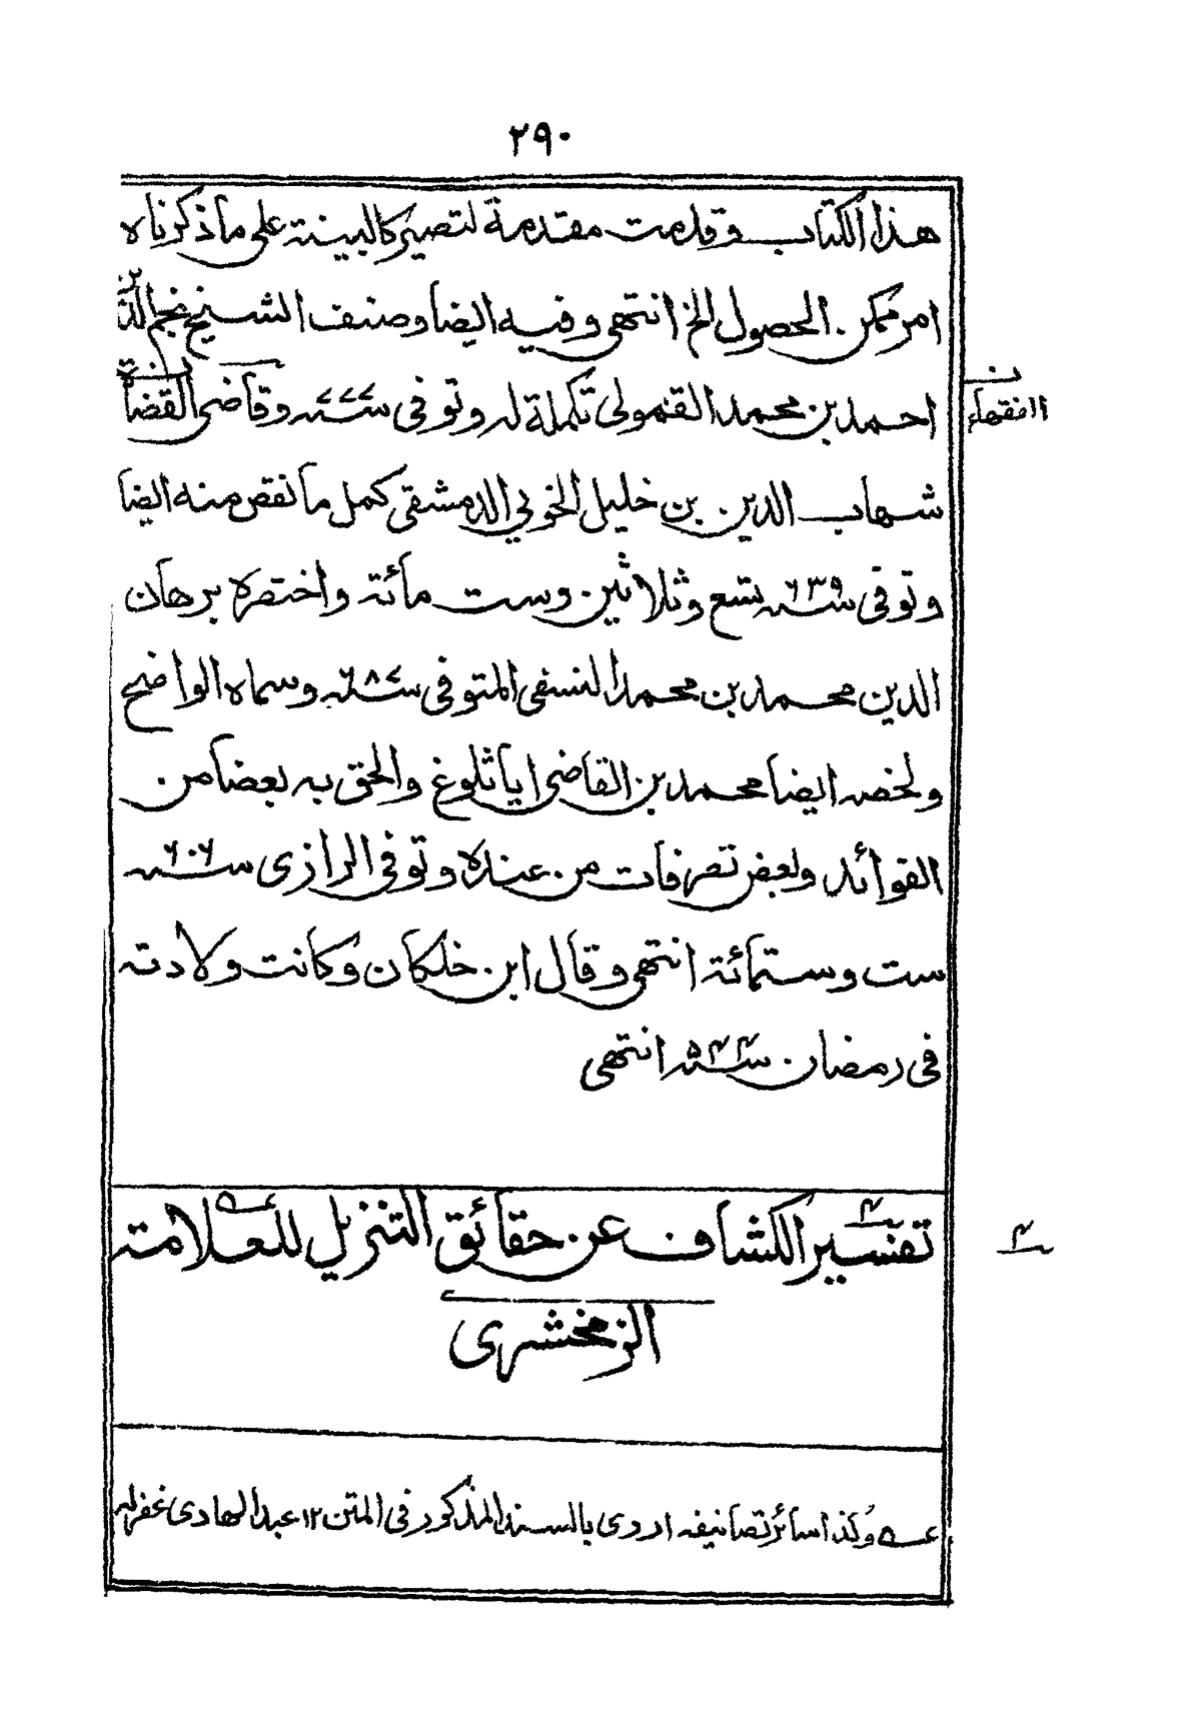 ٢٩٠
هذا الكتاب وقدمت مقدمة لتصير كالبينة على ما ذكرناه
امر ممكن الحصول الخ انتهى وفيه ايضا وصنف الشيخ نجم الدين
احمد بن محمد القمولى تكملة له وتوفى سنة ٧٧٧ وقاضى القضاة
ن
الفقهاء
شهاب الدين بن خليل الخويي الدمشقى كمل ما نقص منه ايضا
وتوفى سنة ٦٣٩ تسع وثلاثين وست مائة واختصره برهان
الدين محمد بن محمد النسفى المتوفى سنة ٦٨٧ وسماه الواضح
ولخصه ايضا محمد بن القاضى اياثلوغ والحق به بعضا من
الفوائد وبعض تصرفات من عنده وتوفى الرازى سنة ٦٠٦
ست وستمائة انتهى وقال ابن خلكان وكانت ولادته
فى رمضان سنة ٥٤٤ انتهى
تفسير الكشاف عن حقائق التنزيل للعلامة
الزمخشرى
عه وكذا سائر تصانيفه اروى بالسند المذكور فى المتن ١٢ عبد الهادى غفر له